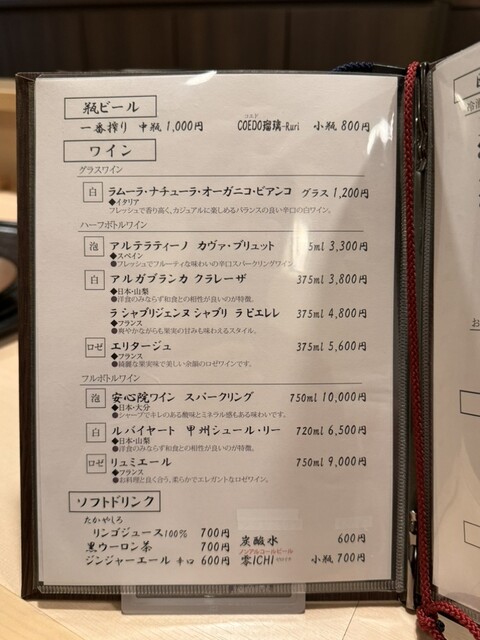 瓶ビール
一番搾り 中瓶 1,000円 COEDO瑠璃-Ruri 小瓶 800円
ワイン
グラスワイン
白 ラムーラ・ナチューラ・オーガニコ・ビアンコ グラス 1,200円
◆イタリア
フレッシュで香り高く、カジュアルに楽しめるバランスの良い辛口の白ワイン。
ハーフボトルワイン
泡 アルテラティーノ カヴァ・ブリュット 5ml 3,300円
◆スペイン
●フレッシュでフルーティな味わいの辛口スパークリングワイン
白 アルガブランカ クラレーザ 375ml 3,800円
◆日本・山梨
●洋食のみならず和食との相性が良いのが特徴。
ラ シャブリジェンヌ シャブリ ラ ピエレレ 375ml 4,800円
◆フランス
●爽やかながらも果実の甘みも味わえるスタイル。
ロゼ エリタージュ 375ml 5,600円
◆フランス
●綺麗な果実味で美しい余韻のロゼワインです。
フルボトルワイン
泡 安心院ワイン スパークリング 750ml 10,000円
◆日本・大分
●シャープでキレのある酸味とミネラル感もある味わいです。
白 ルバイヤート 甲州シュール・リー 720ml 6,500円
◆日本・山梨
●洋食のみならず和食との相性が良いのが特徴。
ロゼ リュミエール 750ml 9,000円
◆フランス
●お料理と良く合う、柔らかでエレガントなロゼワイン。
ソフトドリンク
たかやしろ
リンゴジュース100% 700円
黒ウーロン茶 700円
ジンジャーエール 辛口 600円
炭酸水 600円
ノンアルコールビール
零ICHI 小瓶 700円